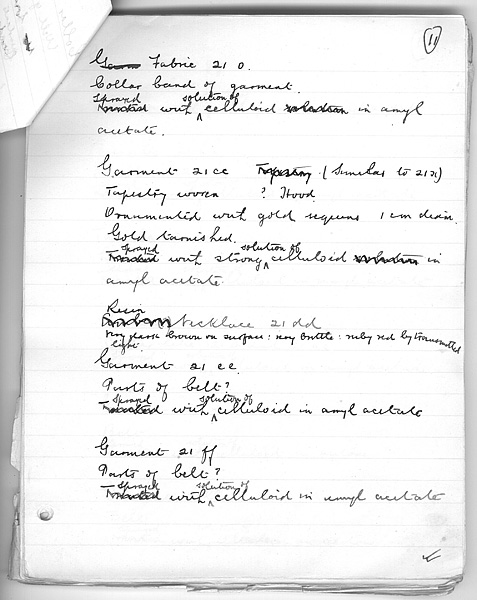 11
Fabric 21 o.
Collar band of garment.
Sprayed with solution of celluloid in amyl
acetate.
Garment 21 cc Tapestry (Similar to 21 x)
Tapestry woven ? Hood.
Ornamented with gold sequins 1 cm diam.
Gold tarnished.
Sprayed with strong solution of celluloid in
amyl acetate
Resin
Necklace 21 dd
Very dark brown on surface: very brittle: ruby red by transmitted
light.
Garment 21 ee.
Parts of belt?
Sprayed with solution of celluloid in amyl acetate
Garment 21 ff
Parts of belt?
Sprayed with solution of celluloid in amyl acetate